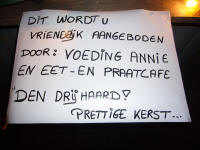 DIT WORDT U
VRIENDELIJK AANGEBODEN
DOOR: VOEDING ANNIE
EN EET-EN PRAATCAFE
"DEN DRIJHAARD"
PRETTIGE KERST...